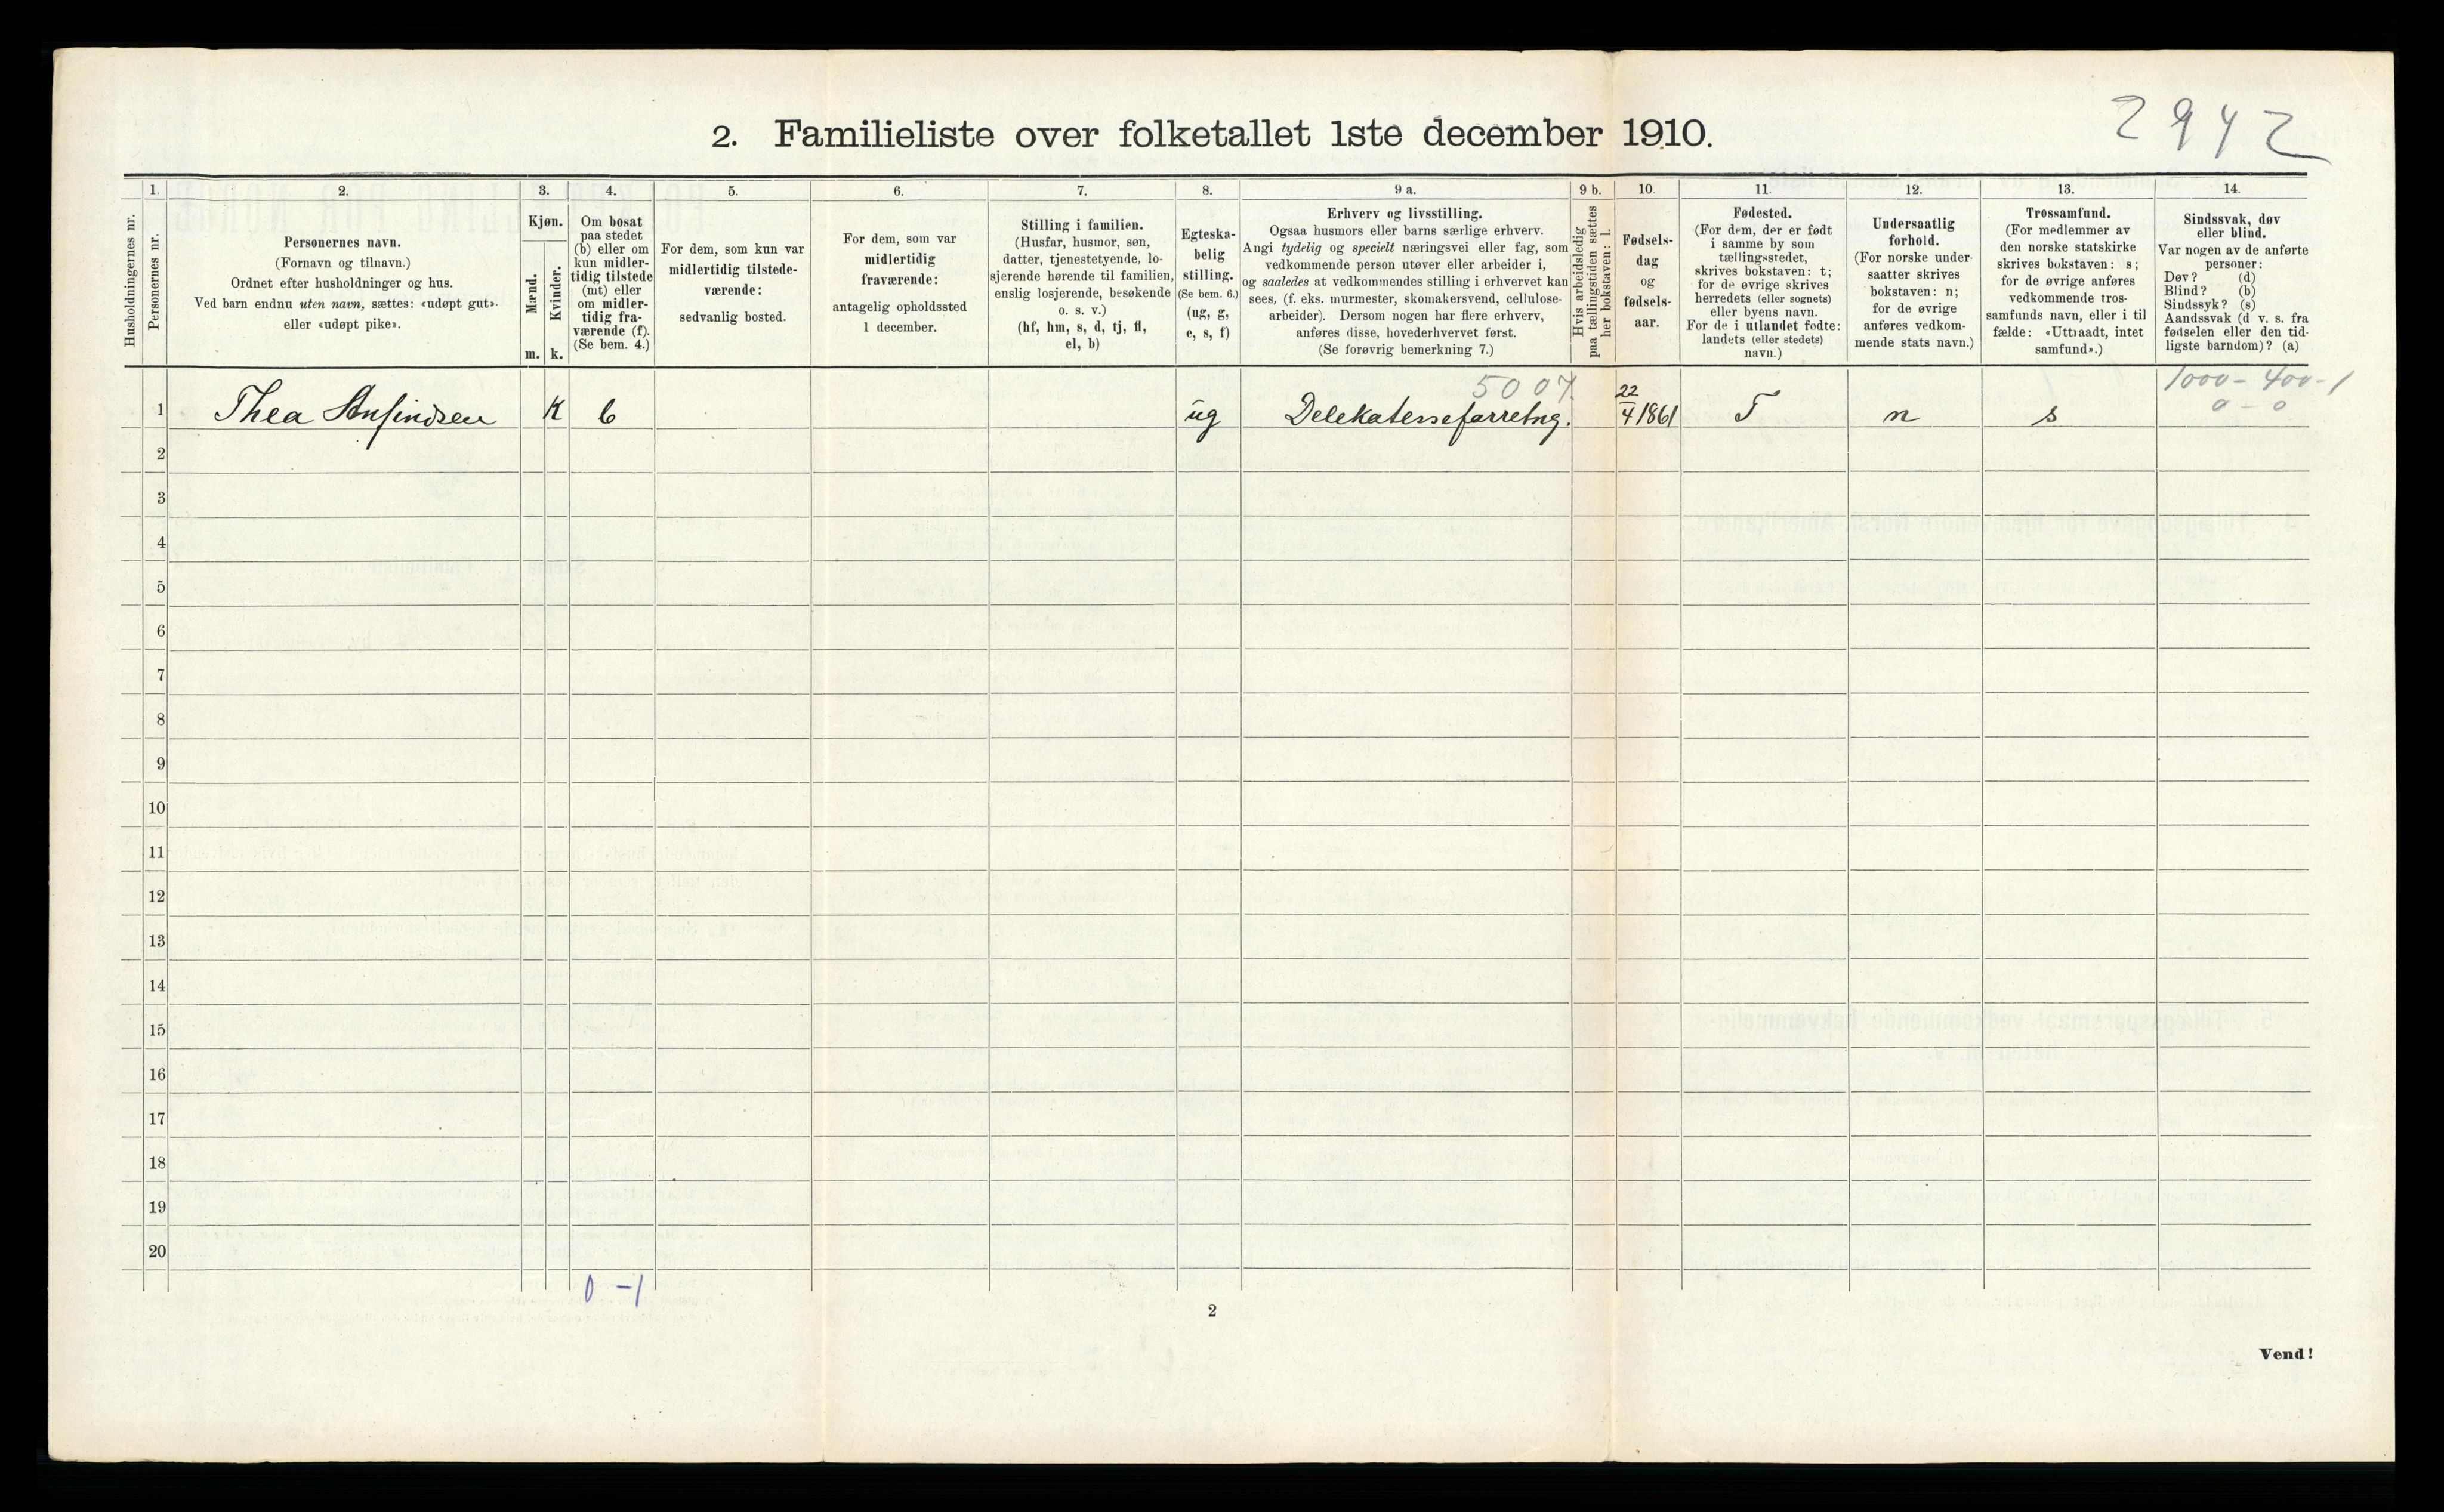 2942
2. Familieliste over folketallet 1ste december 1910.
Husholdningernes nr.
1.
Personernes nr.
2.
Personernes navn.
(Fornavn og tilnavn.)
Ordnet efter husholdninger og hus.
Ved barn endnu uten navn, sættes: «udøpt gut»
eller «udøpt pike».
3.
Kjøn.
Mænd.
Kvinder.
m. k.
4.
Om bosat
paa stedet
(b) eller om
kun midler-
tidig tilstede
(mt) eller
om midler-
tidig fra-
værende (f).
(Se bem. 4.)
5.
For dem, som kun var
midlertidig tilstede-
værende:
sedvanlig bosted.
6.
For dem, som var
midlertidig
fraværende:
antagelig opholdssted
1 december.
7.
Stilling i familien.
(Husfar, husmor, søn,
datter, tjenestetyende, lo-
sjerende hørende til familien,
enslig losjerende, besøkende
o. s. v.)
(hf, hm, s, d, tj, fl,
el, b)
8.
Egteska-
belig
stilling.
(Se bem. 6.)
(ug, g,
e, s, f)
9 a.
Erhverv og livsstilling.
Ogsaa husmors eller barns særlige erhverv.
Angi tydelig og specielt næringsvei eller fag, som
vedkommende person utøver eller arbeider i,
og saaledes at vedkommendes stilling i erhvervet kan
sees, (f. eks. murmester, skomakersvend, cellulose-
arbeider). Dersom nogen har flere erhverv,
anføres disse, hovederhvervet først.
(Se forøvrig bemerkning 7.)
9 b.
Hvis arbeidsledig
paa tællingstiden sættes
her bokstaven: l.
10.
Fødsels-
dag
og
fødsels-
aar.
11.
Fødested.
(For dem, der er født
i samme by som
tællingsstedet,
skrives bokstaven: t;
for de øvrige skrives
herredets (eller sognets)
eller byens navn.
For de i utlandet fødte:
landets (eller stedets)
navn.)
12.
Undersaatlig
forhold.
(For norske under-
saatter skrives
bokstaven: n;
for de øvrige
anføres vedkom-
mende stats navn.)
13.
Trossamfund.
(For medlemmer av
den norske statskirke
skrives bokstaven: s;
for de øvrige anføres
vedkommende tros-
samfunds navn, eller i til
fælde: «Uttraadt, intet
samfund».)
14.
Sindssvak, døv
eller blind.
Var nogen av de anførte
personer:
Døv? (d)
Blind? (b)
Sindssyk? (s)
Aandssvak (d v. s. fra
fødselen eller den tid-
ligste barndom)? (a)
5007 1000-400-1
0-0
1 Thea Anfindsen K b ug Delekatesseforretng. 22/4 1861 T n s
2
3
4
5
6
7
8
9
10
11
12
13
14
15
16
17
18
19
20
0-1
2
Vend!